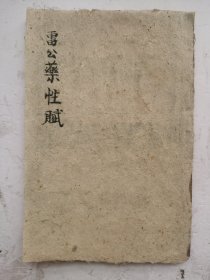 雷公藥性賦